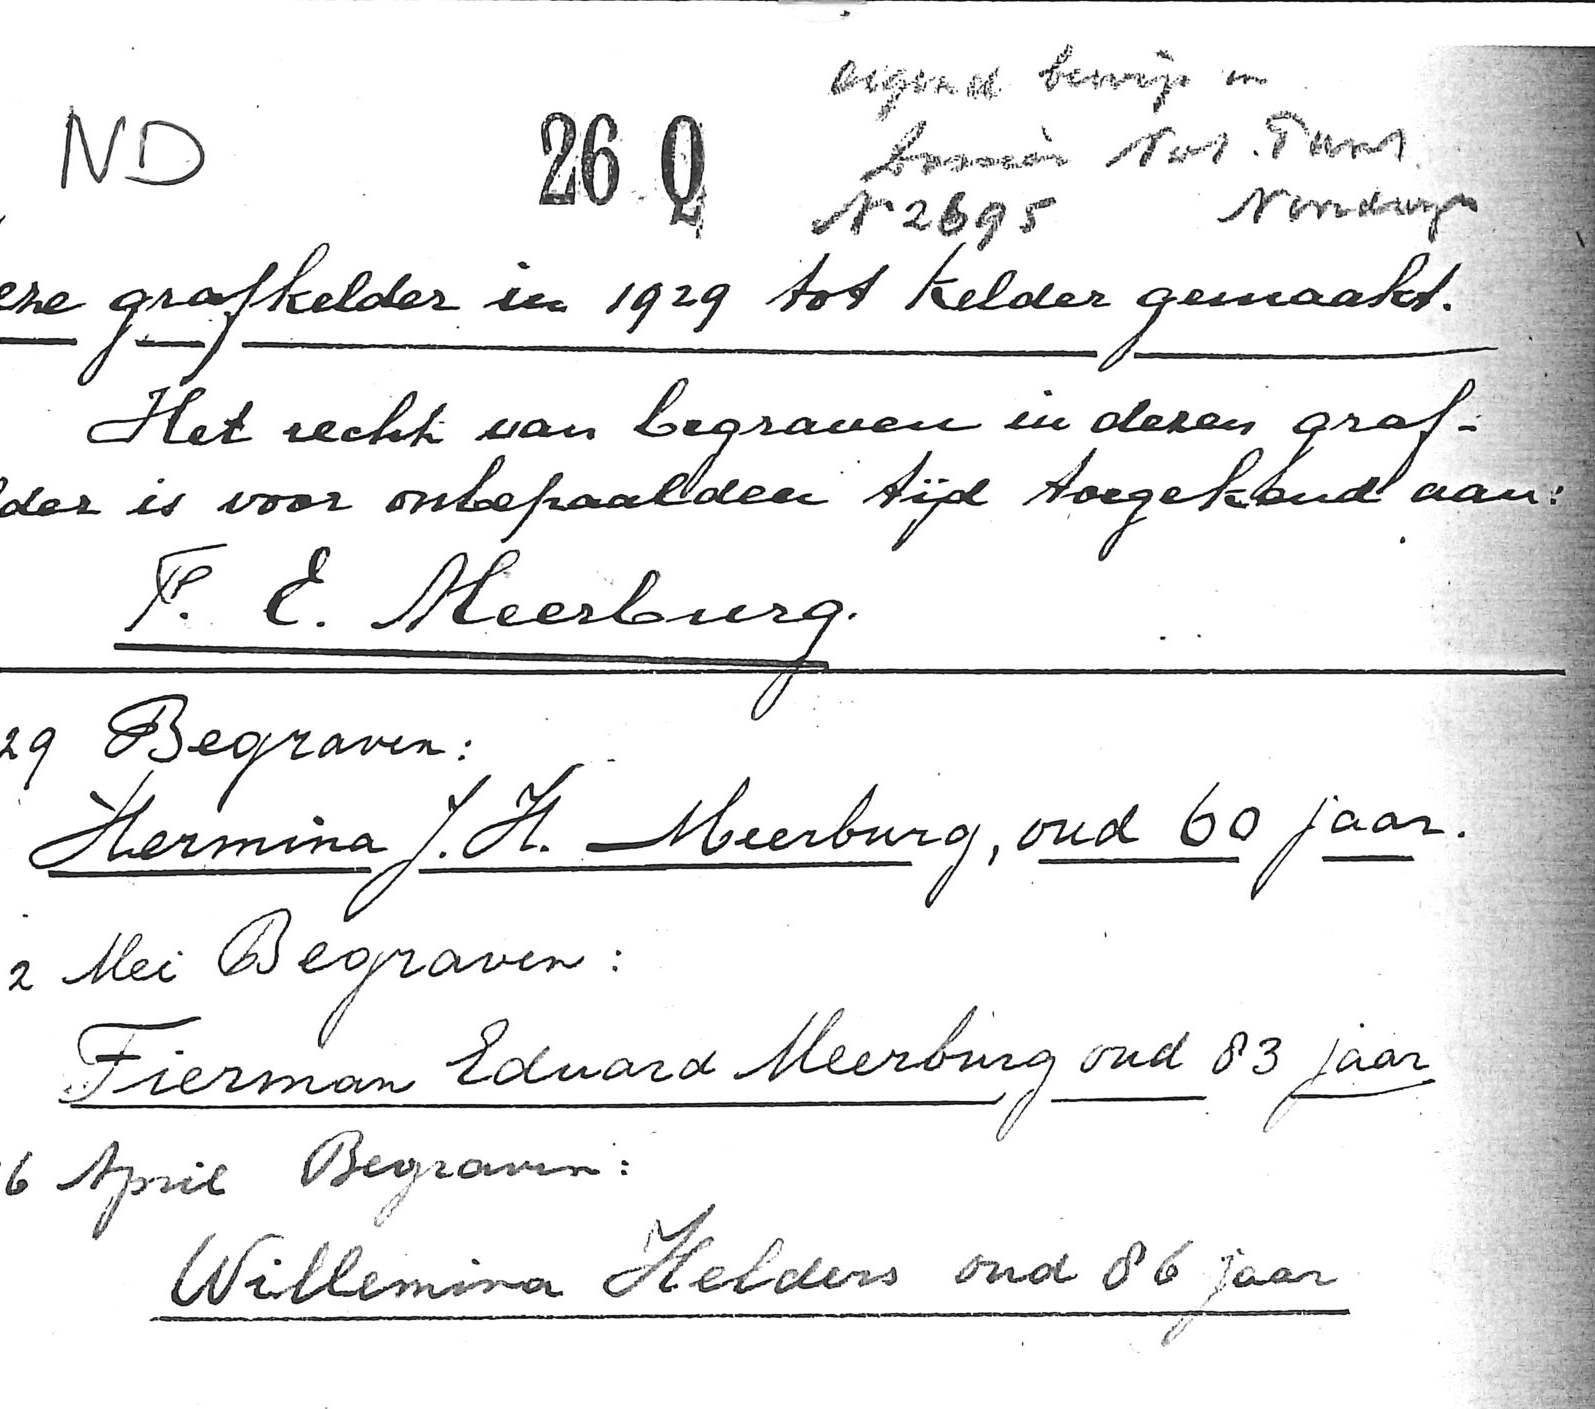 eigend bewijs in
ND 26 Q dossier Not.
N 2695 Noordwijk
eze grafkelder in 1929 tot kelder gemaakt.
Het recht van begraven in dezen graf-
lder is voor onbepaalden tijd toegekend aan:
F. E. Meerburg.
29 Begraven:
Hermina J. H. Meerburg, oud 60 jaar.
2 Mei Begraven:
Fierman Eduard Meerburg oud 83 jaar
6 April Begraven:
Willemina Helders oud 86 jaar